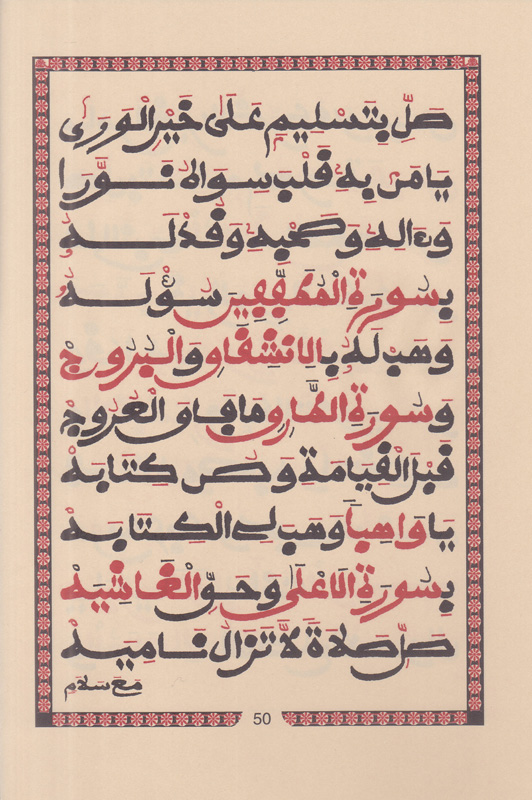 صَلِّ بِتَسْلِيمٍ عَلَى خَيْرِ الْوَرَى
يَا مَنْ بِهِ قَلْبَ سِوَاهُ نَوَّرَا
وَءَالِهِ وَصَحْبِهِ وَقُدْ لَهُ
بِسُورَةِ الْمُطَفِّفِينَ سُؤْلَهُ
وَهَبْ لَهُ بِالِانْشِقَاقِ وَالْبُرُوجْ
وَسُورَةِ الطَّارِقِ مَا فَاقَ الْعُرُوجْ
قَبْلَ الْقِيَامَةِ وَصُنْ كِتَابَهْ
يَا وَاهِباً وَهَبَ لِي الْكِتَابَهْ
بِسُورَةِ الَاعْلَى وَحَقِّ الْغَاشِيَهْ
صَلِّ صَلَاةً لَا تَزَالُ نَامِيَهْ
مَعَ سَلَامٍ
50